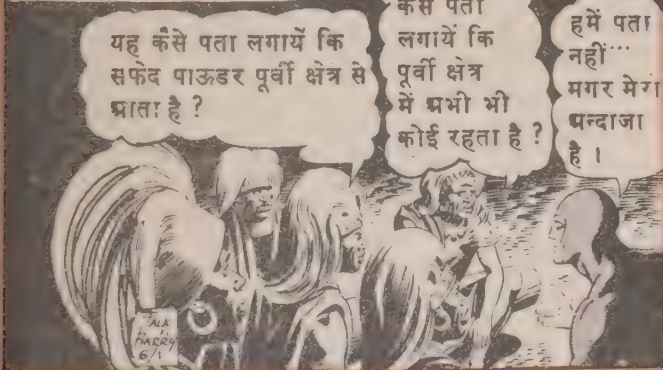 यह कैसे पता लगायें कि
सफेद पाऊडर पूर्वी क्षेत्र से
म्राता है ?
कैसे पता
लगायें कि
पूर्वी क्षेत्र
में म्रभी भी
कोई रहता है ?
हमें पता
नहीं...
मगर मेरा
म्रन्दाजा
है ।
HARRY
6/1